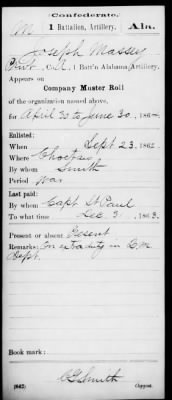 Confederate.
M 1 Battalion, Artillery. Ala.
Joseph Massey
Pvt, Co. A, 1 Batt'n Alabama Artillery.
Appears on
Company Muster Roll
of the organization named above,
for April 30 to June 30, 186
Enlisted:
When Sept 23, 1862
Where Choctaw
By whom Smith
Period War
Last paid:
By whom Capt St Paul
To what time Dec 31, 1863.
Present or absent Present
Remarks: On extra duty in Q.M.
Dept.
Book mark:
Smith
(642) Copyist.